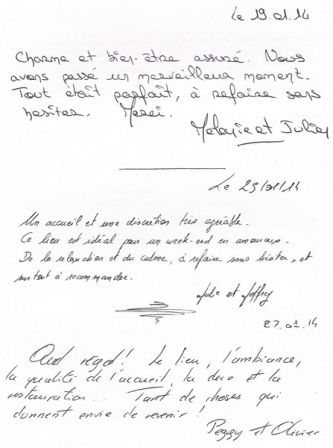 Le 19.01.14
Charme et bien-être assuré. Nous
avons passé un merveilleux moment.
Tout était parfait, à refaire sans
hesiter. Merci.
Melanie et Julien
Le 23/01/14
Un accueil et une discretion tres agréable.
Ce lieu est idéal pour un week-end en amoureux.
De la relaxation et du calme, à refaire sans hésiter, et
surtout à recommander.
Julie et Joffrey
27.01.14
Quel régal! Le lieu, l'ambiance,
la qualité de l'accueil, la déco et la
restauration... Tant de choses qui
donnent envie de revenir!
Peggy et Olivier